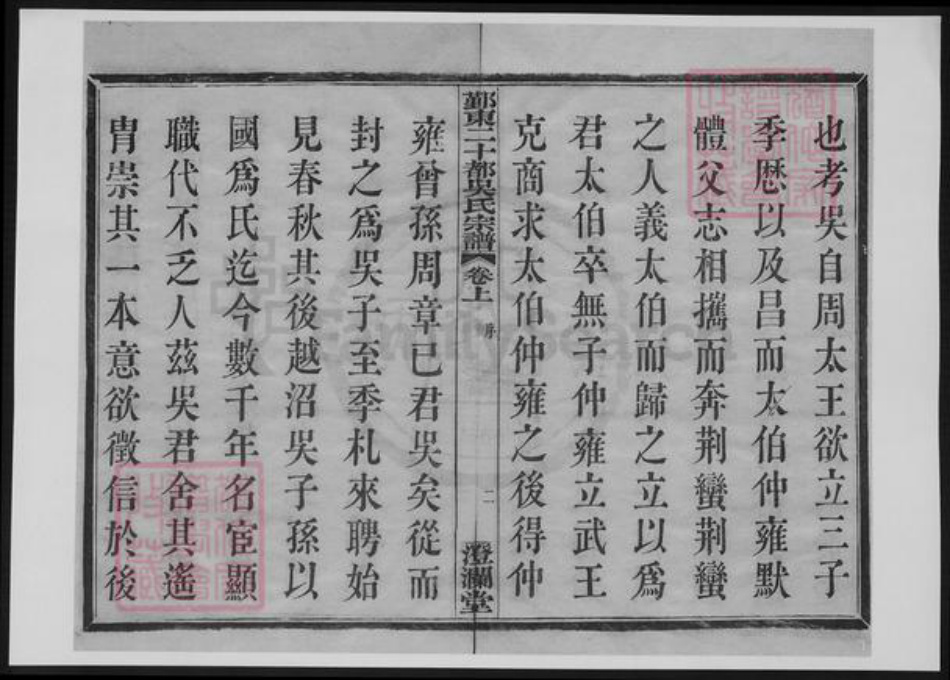 也考吳自周太王欲立三子
季厯以及昌而太伯仲雍默
體父志相攜而奔荆蠻荆蠻
之人義太伯而歸之立以爲
君太伯卒無子仲雍立武王
克商求太伯仲雍之後得仲
鄞東二十都吳氏宗譜 卷上 序 二 澄瀾堂
雍曾孫周章已君吳矣從而
封之爲吳子至季札來聘始
見春秋其後越沼吳子孫以
國爲氏迄今數千年名宦顯
職代不乏人茲吳君舍其遙
胄祟其一本意欲徵信於後
FamilySearch